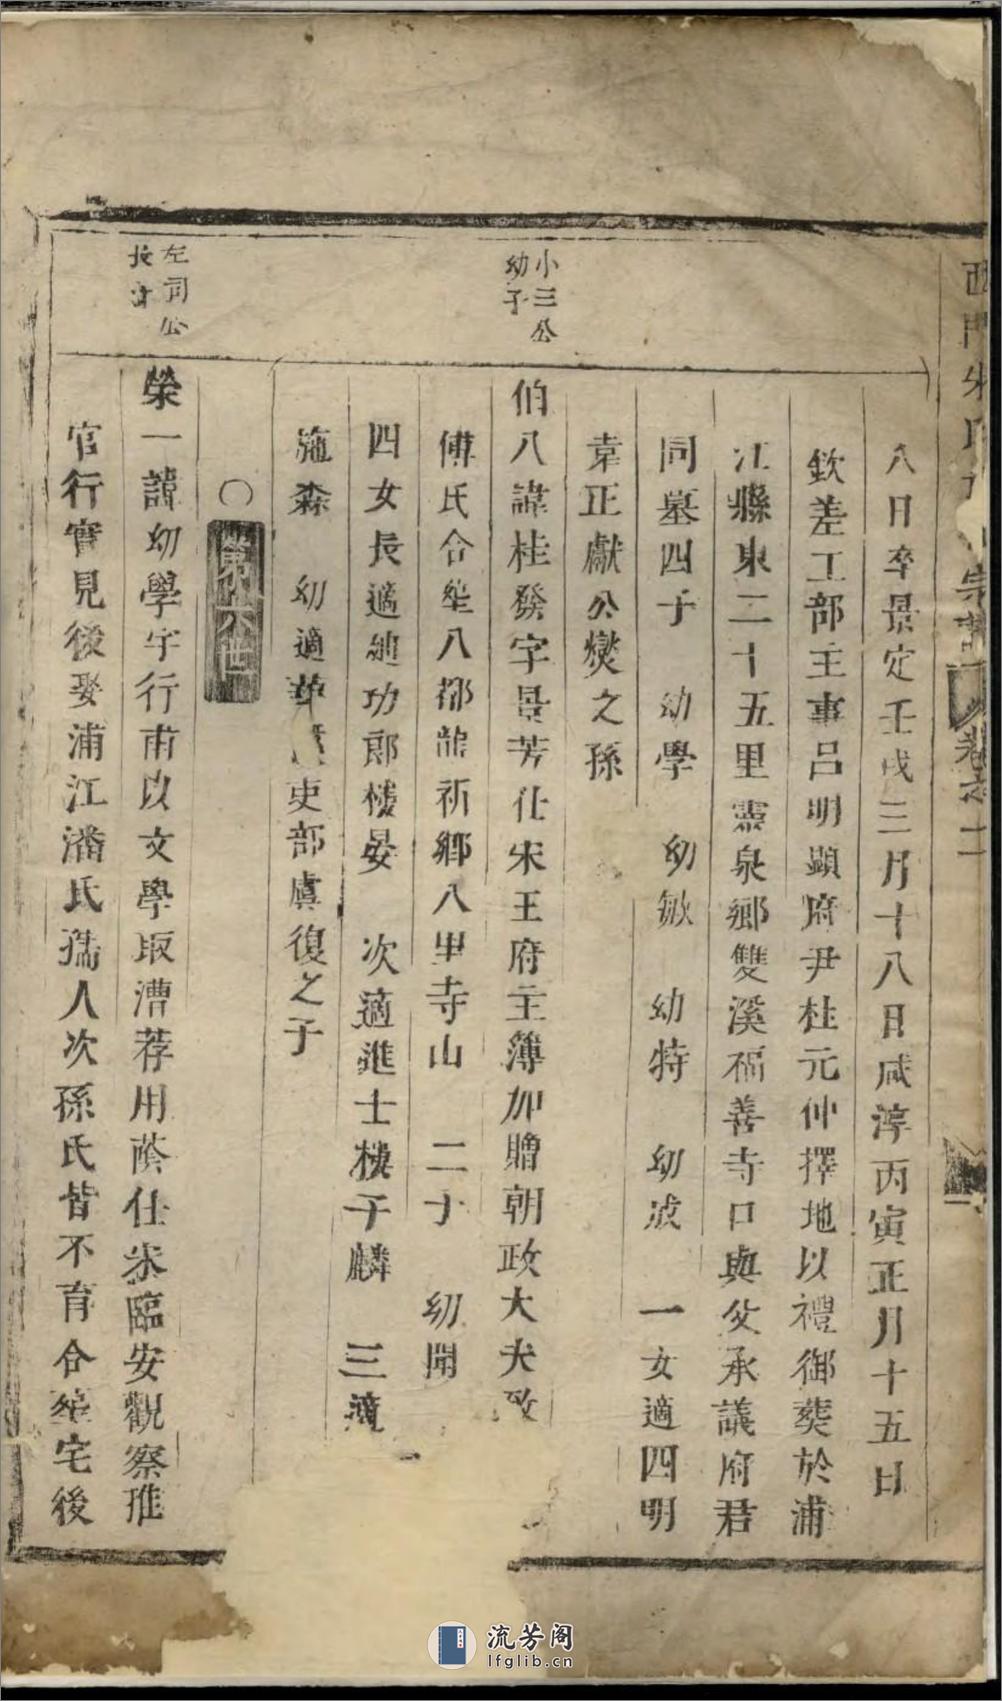 西門朱氏宗譜 卷之二
八日卒景定壬戌三月十八日咸淳丙寅正月十五日
欽差工部主事呂明顯府尹杜元仲擇地以禮御葬於浦
江縣東二十五里靈泉鄉雙溪福善寺口與父承議府君
同墓四子 幼學 幼敏 幼特 幼波 一女適四明
袁正獻公燮之孫
小三公
幼子
伯八諱桂發字景芳仕宋王府主簿加贈朝政大夫致
傅氏合塟八都龍祈鄉八里寺山 二子 幼開
四女長適迪功郎樓晏 次適進士樓子麟 三適
施森 幼適華 吏部虞復之子
○第 六世
左司公
長子
榮一諱幼學字行甫以文學取漕荐用蔭仕宋臨安觀察推
官行實見後娶浦江潘氏孺人次孫氏皆不育合塟宅後
流芳阁
lfglib.cn